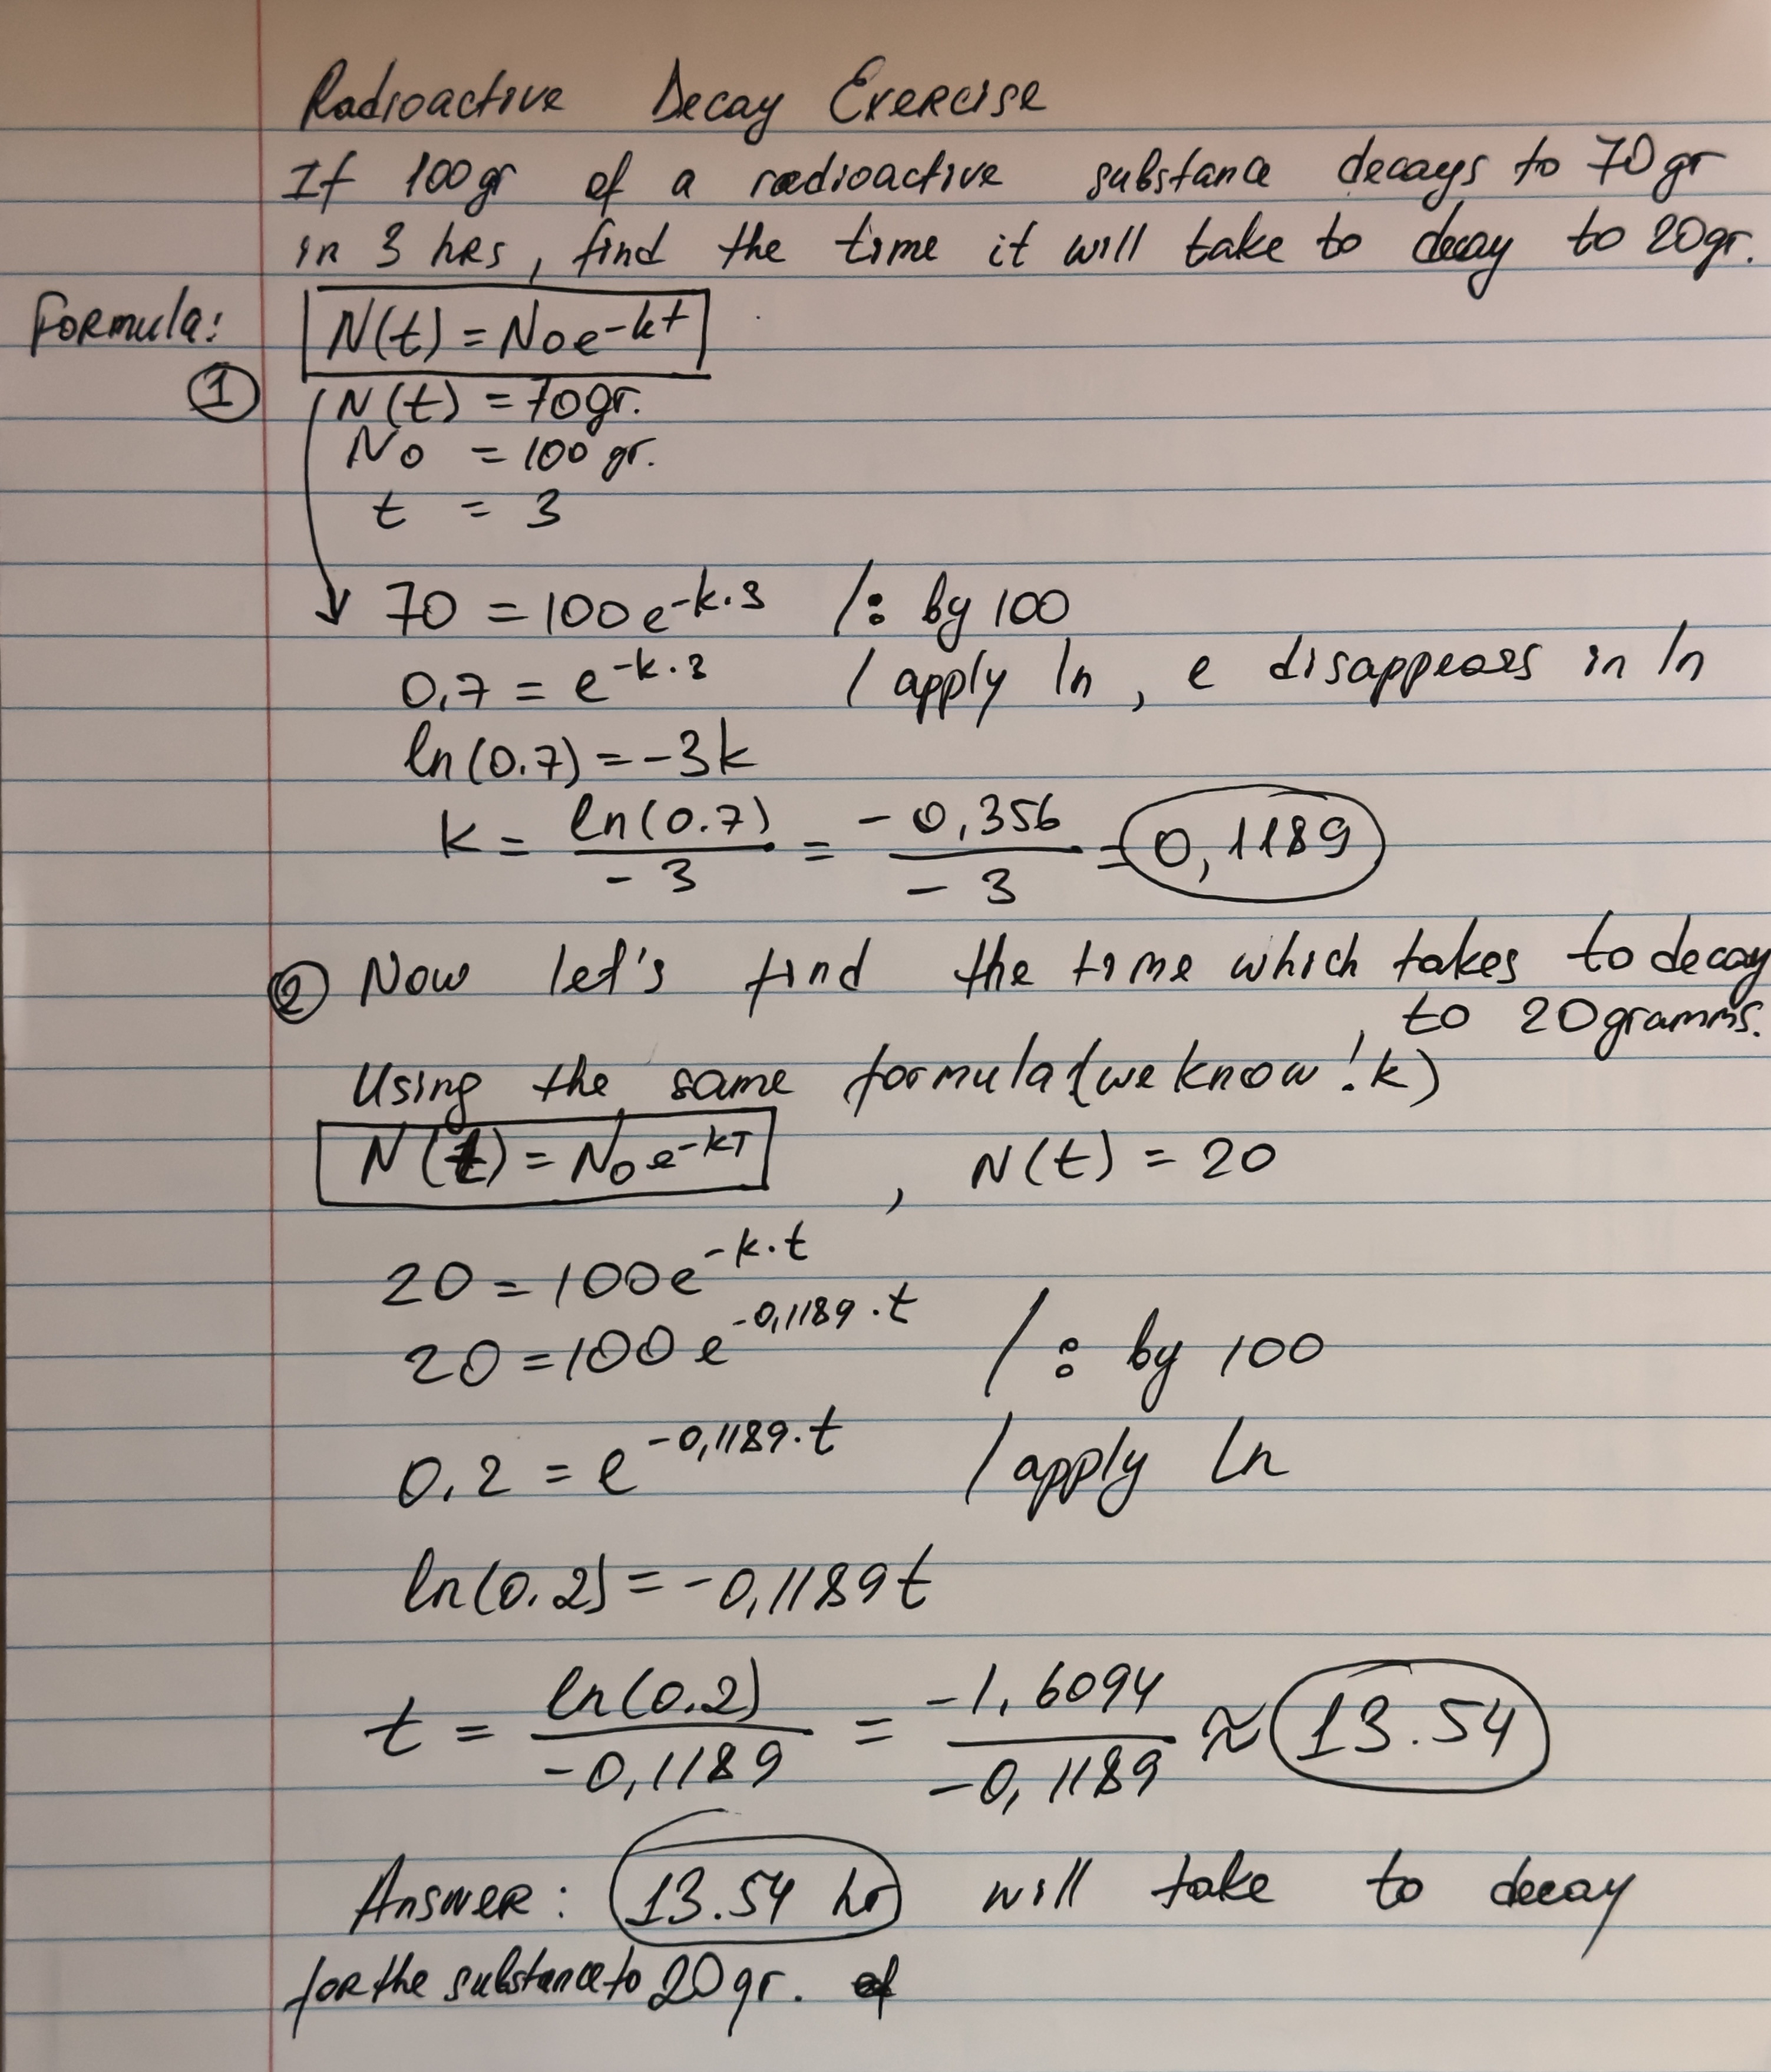 Radioactive Decay Exercise
If 100gr of a radioactive substance decays to 70gr
in 3 hrs, find the time it will take to decay to 20gr.
Formula: N(t) = N₀e^-kt
① N(t) = 70gr.
N₀ = 100 gr.
t = 3
70 = 100e^-k·3 /: by 100
0,7 = e^-k·3 / apply ln, e disappears in ln
ln(0.7) = -3k
k = ln(0.7)/-3 = -0,356/-3 = 0,1189
② Now let's find the time which takes to decay
to 20gramms.
Using the same formula (we know! k)
N(t) = N₀e^-kT , N(t) = 20
20 = 100e^-k·t
20 = 100e^-0,1189·t /: by 100
0.2 = e^-0,1189·t / apply ln
ln(0.2) = -0,1189t
t = ln(0.2)/-0,1189 = -1,6094/-0,1189 ≈ 13.54
Answer: 13.54 hr will take to decay
for the substance to 20gr.